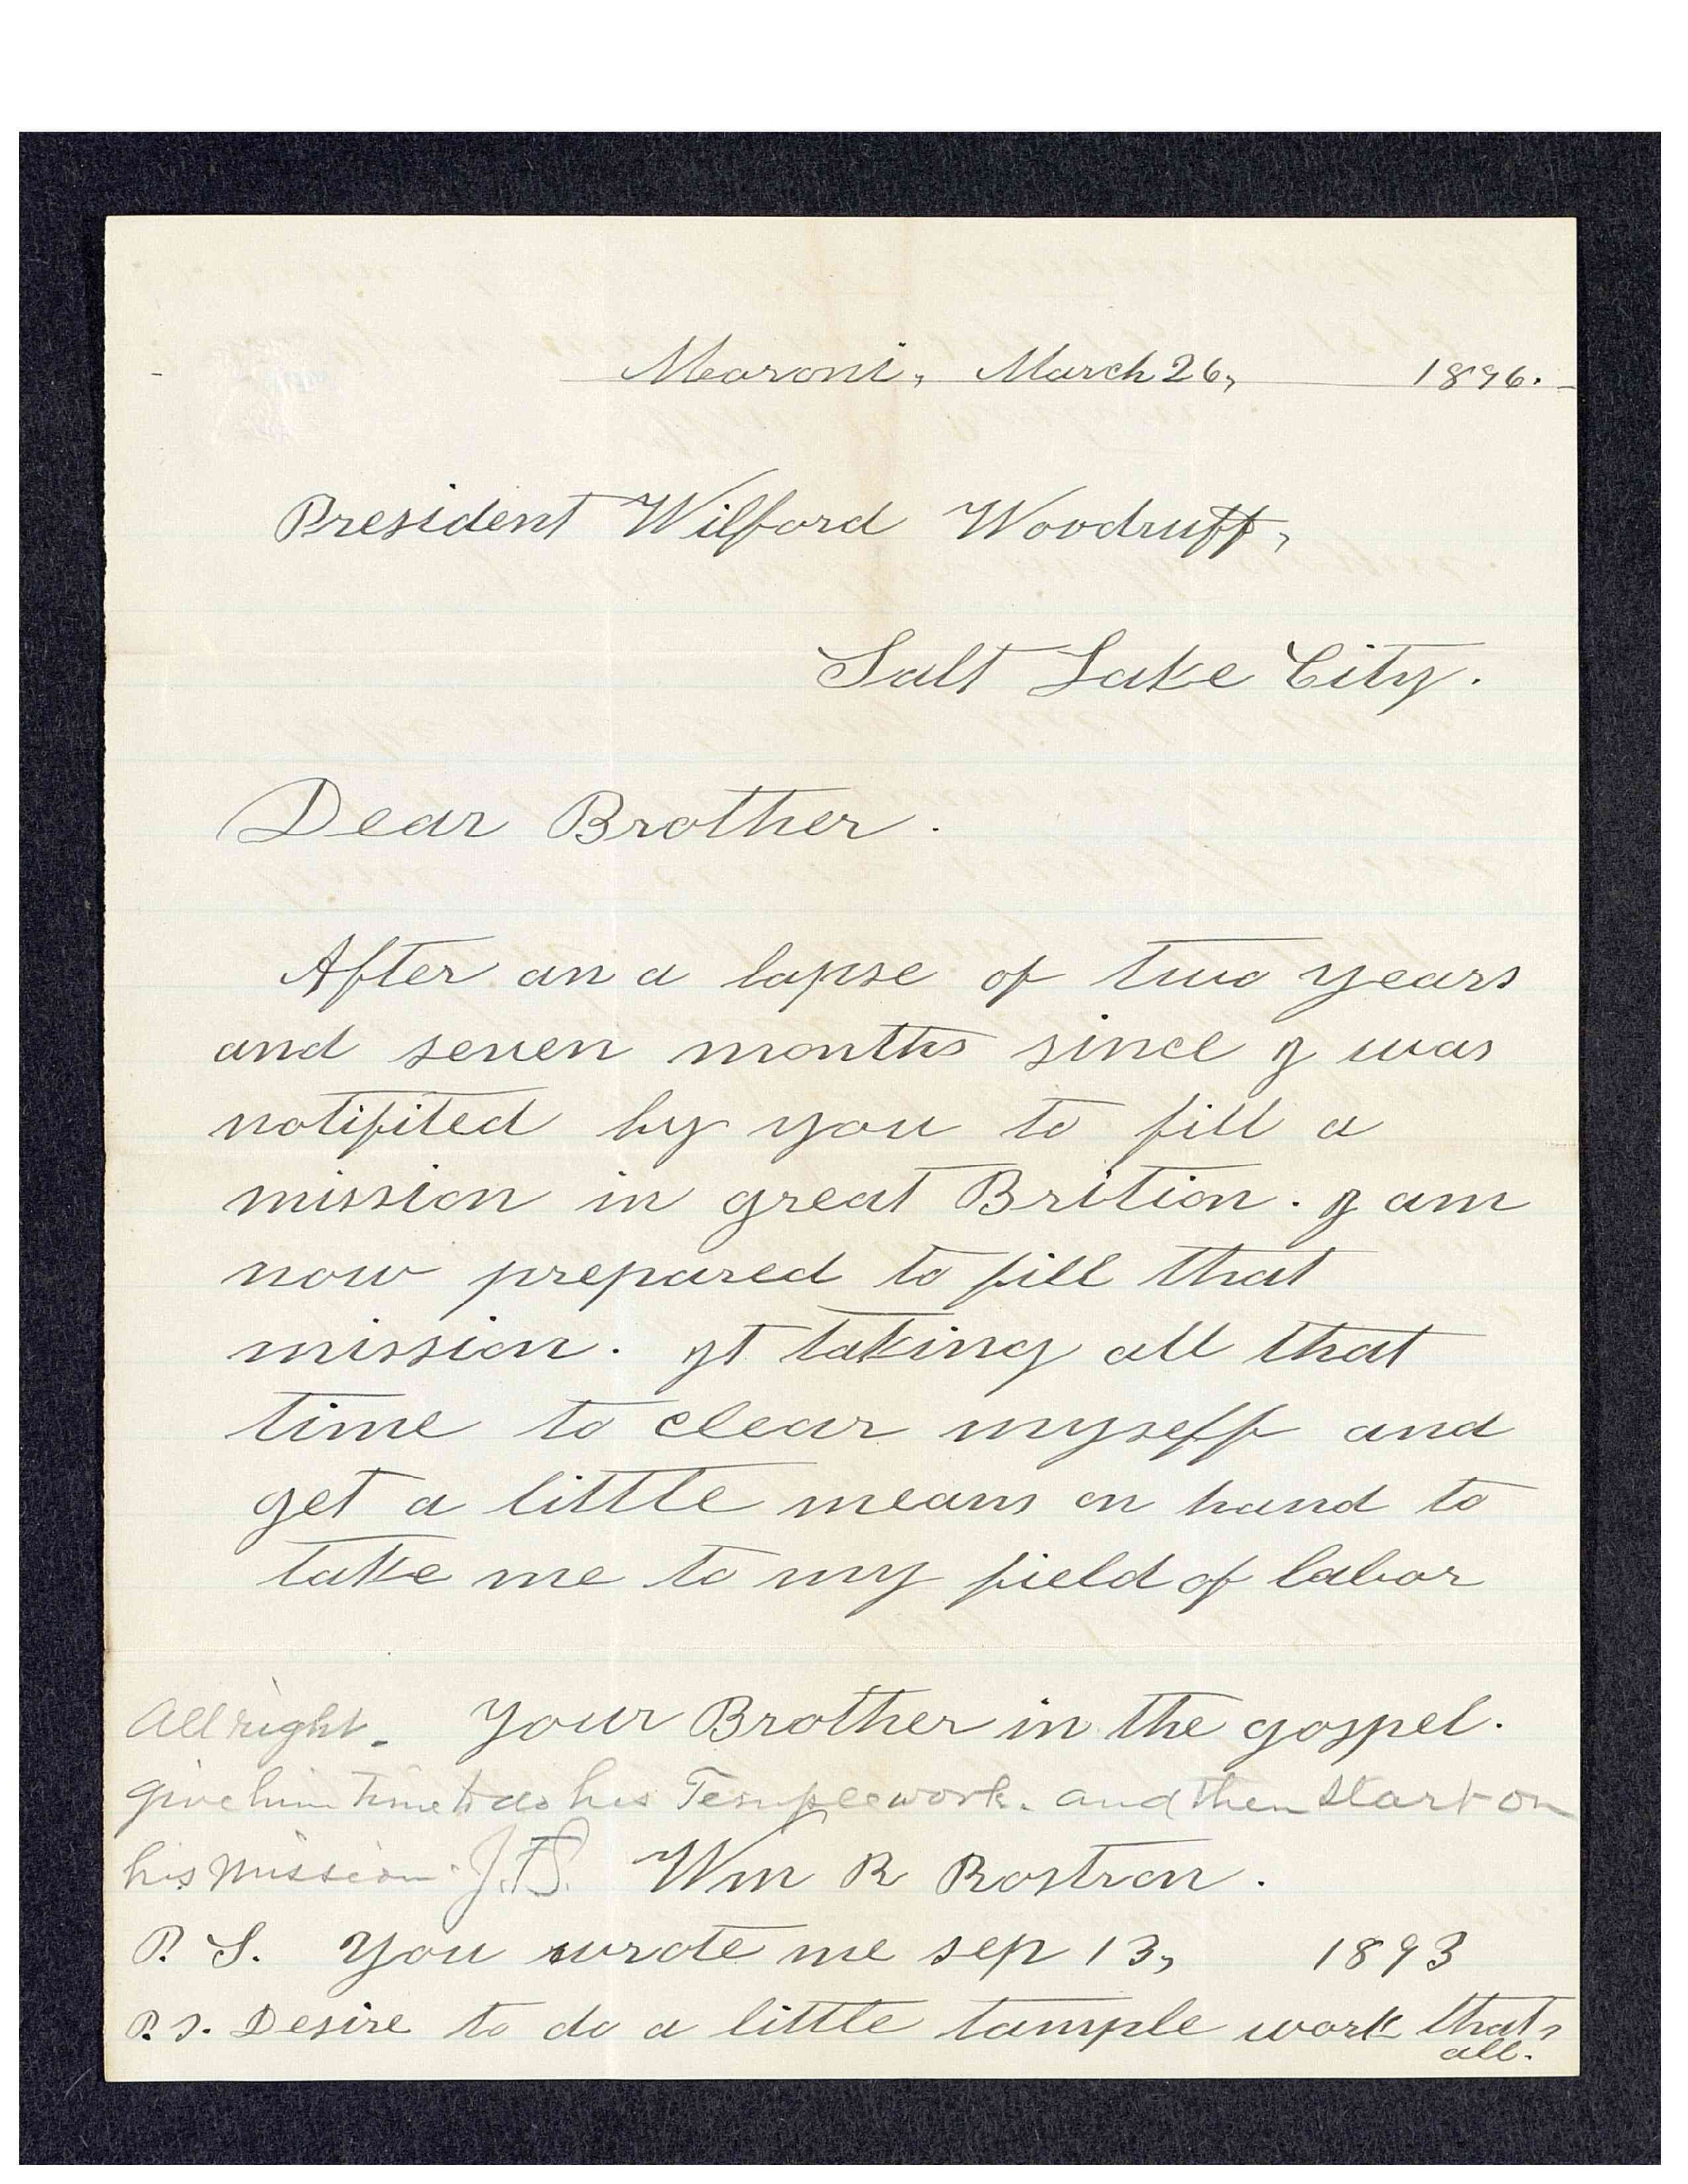 Moroni, March 26, 1896.
President Wilford Woodruff,
Salt Lake City.
Dear Brother.
After an a lapse of two years
and seven months since I was
notifited by you to fill a
mission in great Brition. I am
now prepared to fill that
mission. It taking all that
time to clear myself and
get a little means on hand to
take me to my field of labor
All right. Your Brother in the gospel.
Give him time to do his Temple work. and then start on
his mission. J.F.S. Wm R Rostron.
P.S. You wrote me sep 13, 1893
P.S. Desire to do a little tample work that,
all.